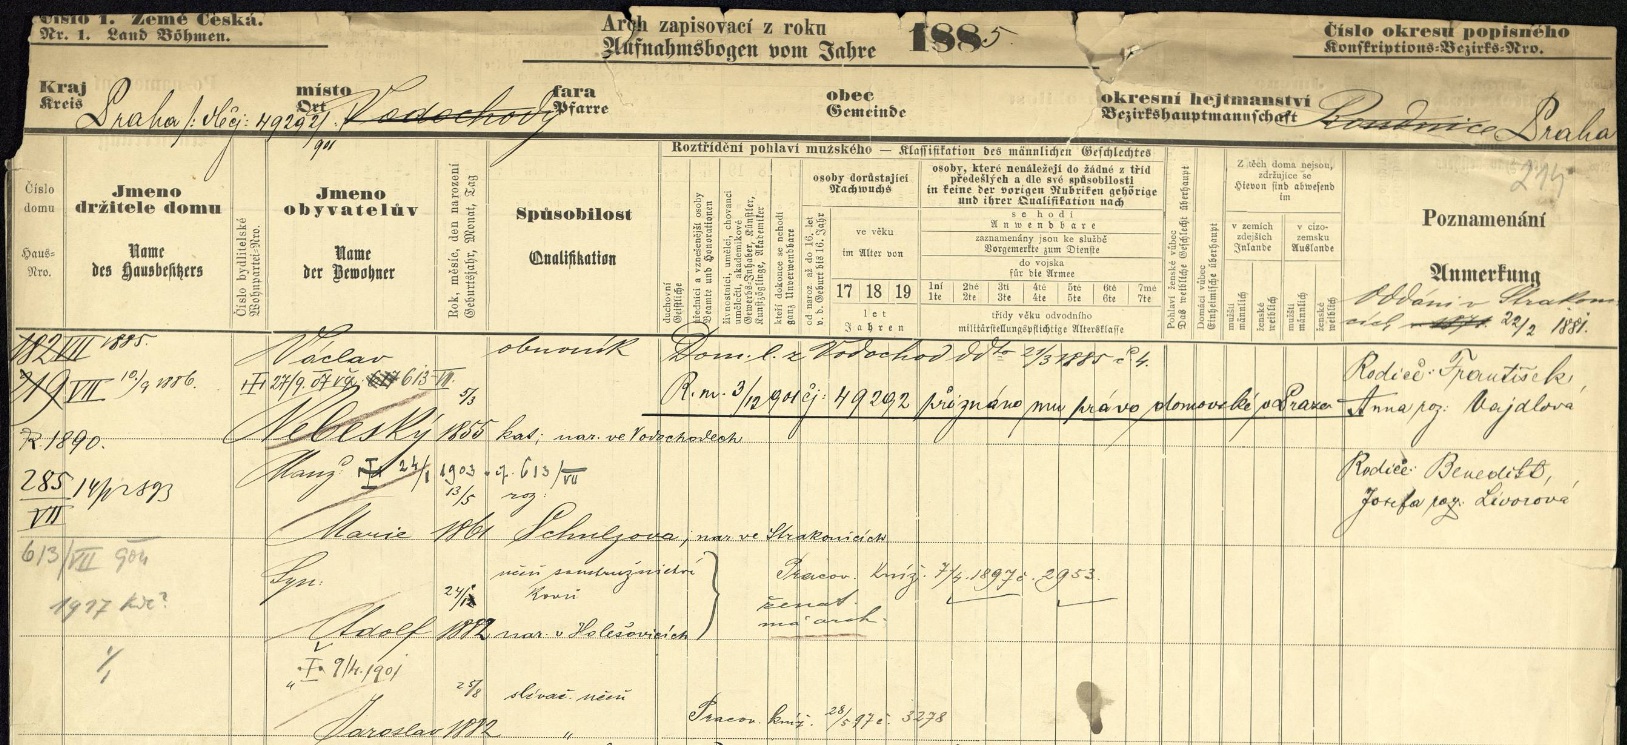 Číslo 1. Země Česká.
Nr. 1. Land Böhmen.
Arch zapisovací z roku
Aufnahmsbogen vom Jahre 1885.
Číslo okresu popisného
Konskriptions-Bezirks-Nro.
Kraj
Kreis
Praha /: 49292/901
místo
Ort
Vodochody
fara
Pfarre
obec
Gemeinde
okresní hejtmanství
Bezirkshauptmannschaft
Roudnice Praha
214
Číslo domu
Haus-Nro.
Jméno
držitele domu
Name
des Hausbesitzers
Číslo bydlitelské
Wohnpartei-Nro.
Jméno
obyvatelův
Name
der Bewohner
Rok, měsíc, den narození
Geburtsjahr, Monat, Tag
Spůsobilost
Qualifikation
Roztřídění pohlaví mužského — Klassifikation des männlichen Geschlechtes
duchovní
Geistliche
úředníci a vznešenější osoby
Beamte und Honorationen
živnostníci, umělci, chovanci
umělečtí, akademikové
Gewerbs-Inhaber, Künstler,
Kunstzöglinge, Akademiker
kteří dokonce se nehodí
ganz Unverwendbare
osoby dorůstající
Nachwuchs
od naroz. až do 16. let
v. d. Geburt bis 16. Jahr
ve věku
im Alter von
17 18 19
let
Jahren
osoby, které nenáležejí do žádné z tříd
předešlých a dle své spůsobilosti
in keine der vorigen Rubriken gehörige
und ihrer Qualifikation nach
se hodí
Anwendbare
zaznamenány jsou ke službě
Vorgemerkte zum Dienste
do vojska
für die Armee
1ní 2hé 3tí 4té 5té 6té 7mé
1te 2te 3te 4te 5te 6te 7te
třídy věku odvodního
militärstellungspflichtige Altersklasse
Pohlaví ženské vůbec
Das weibliche Geschlecht überhaupt
Domácí vůbec
Einheimische überhaupt
Z těch doma nejsou,
zdržujíce se
Hievon sind abwesend
im
v zemích
zdejších
Inlande
v cizo-
zemsku
Auslande
mužští
männlich
ženské
weiblich
mužští
männlich
ženské
weiblich
Poznamenání
Anmerkung
Oddáni v Strakoni
cích 22/2 1881.
182 VII 1885
Václav
obuvník
Dom. l. z Vodochod ddto 21/3 1885 č 4.
219 VII 10/9 1886.
27/9. 07 613-VII.
5/3
R. m. 3/12 901 čj: 49292 přiznáno mu právo domovské v Praze
Rodiče: František,
Anna roz: Vajdlová
R 1890.
Nebeský 1855 kat; nar. ve Vodochodech
285/VII 14/ 893
Manž: 24/1 1903 613/VII
13/5 roz:
Rodiče: Benedikt,
Josefa roz: Livorová
Marie 1861 Schulzova, nar ve Strakonicích
613/VII 904
Syn:
24/12
Pracov. kníž. 7/4 1897 č. 2953.
ženat
má arch.
1917
Adolf 1882 nar. v Holešovicích
9/4. 1901
25/8 slévač. učeň
Jaroslav 1882 "
Pracov. kníž. 28/5 97 č. 3278